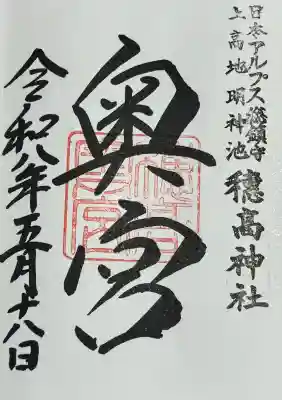 日本アルプス総鎮守
上高地明神池 穂高神社
奥宮
令和八年五月十八日